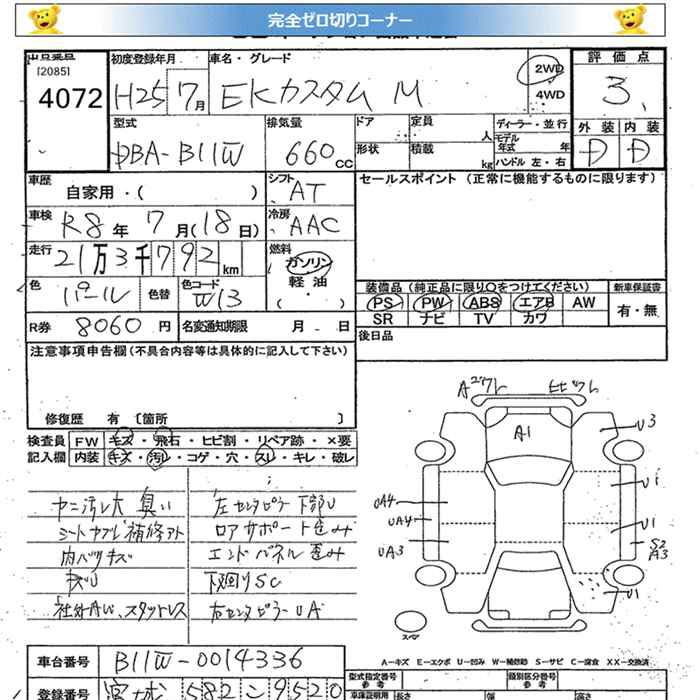 完全ゼロ切りコーナー
出品票
[2085]
4072
初度登録年月
H25 7月
車名・グレード
EKカスタム M
2WD
4WD
評価点
3
外装 内装
D D
型式
DBA-B11W
排気量
660 CC
ドア
形状
定員 人
積載 kg
ディーラー・並行
モデル年式 年
ハンドル 左・右
車歴
自家用・( )
シフト
AT
セールスポイント (正常に機能するものに限ります)
車検
R8年 7月(18日)
冷房
AAC
走行
21万3千792 km
燃料
ガソリン
軽油
( )
色
パール
色替
色コード
W13
装備品 (純正品に限り○をつけてください)
新車保証書
PS PW ABS エアB AW
有・無
SR ナビ TV カワ
R券 8060円
名変通知期限 月 日
後日品
注意事項申告欄(不具合内容等は具体的に記入して下さい)
修復歴 有 [箇所 ]
検査員 FW キズ・飛石・ヒビ割・リペア跡・×要
記入欄 内装 キズ・汚れ・コゲ・穴・スレ・キレ・破レ
ヤニ汚レ大 臭い
シートカブレ 補修アト
内バリキズ
キズU
社外AW、スタットレス
左センタピラー下部U
ロアサポート歪み
エンドパネル歪み
下廻りSC
右センタピラーUA
A2ワレ
ヒビワレ
A1
U3
U1
UA4
UA4
UA3
U1
S2
A3
U1
スペア
A-キズ E-エクボ U-凹み W-補修跡 S-サビ C-腐食 XX-交換済
車台番号 B11W-0014336
登録番号 宮城 582 こ 9520
型式指定番号
参考
類別区分番号
参考
車庫証明用
長さ 幅 高さ